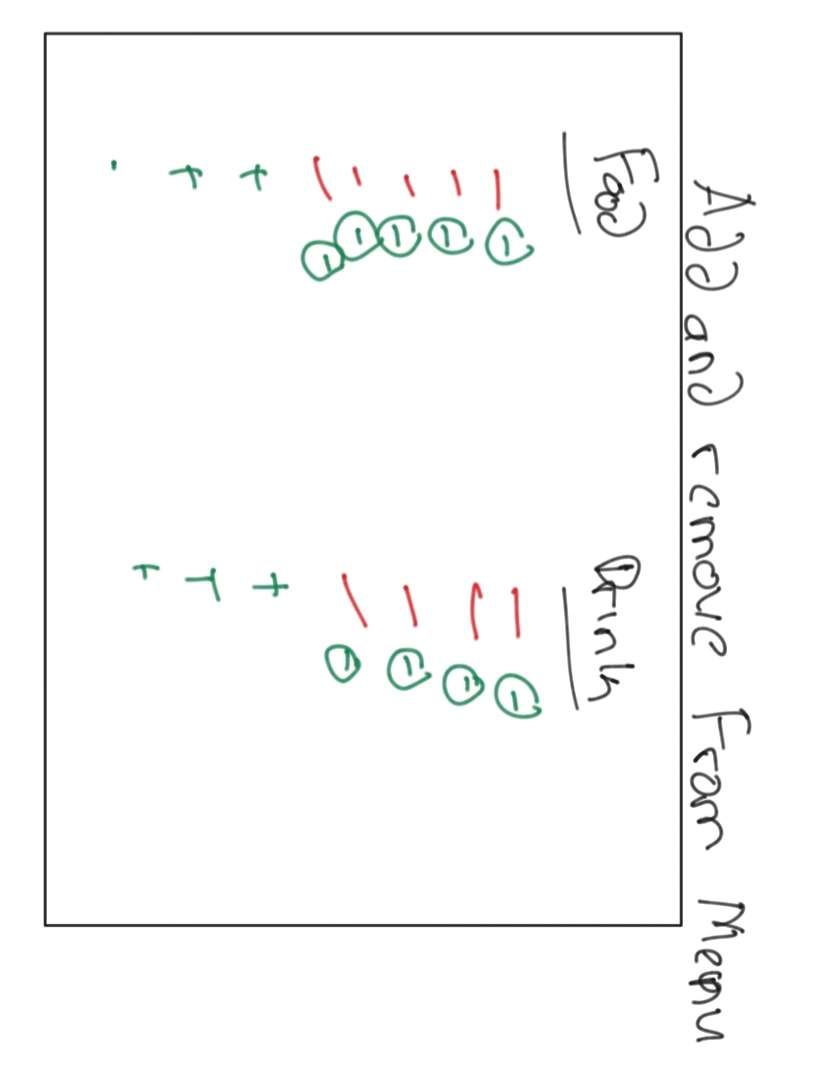 Add and remove From Menu
Food
Drink